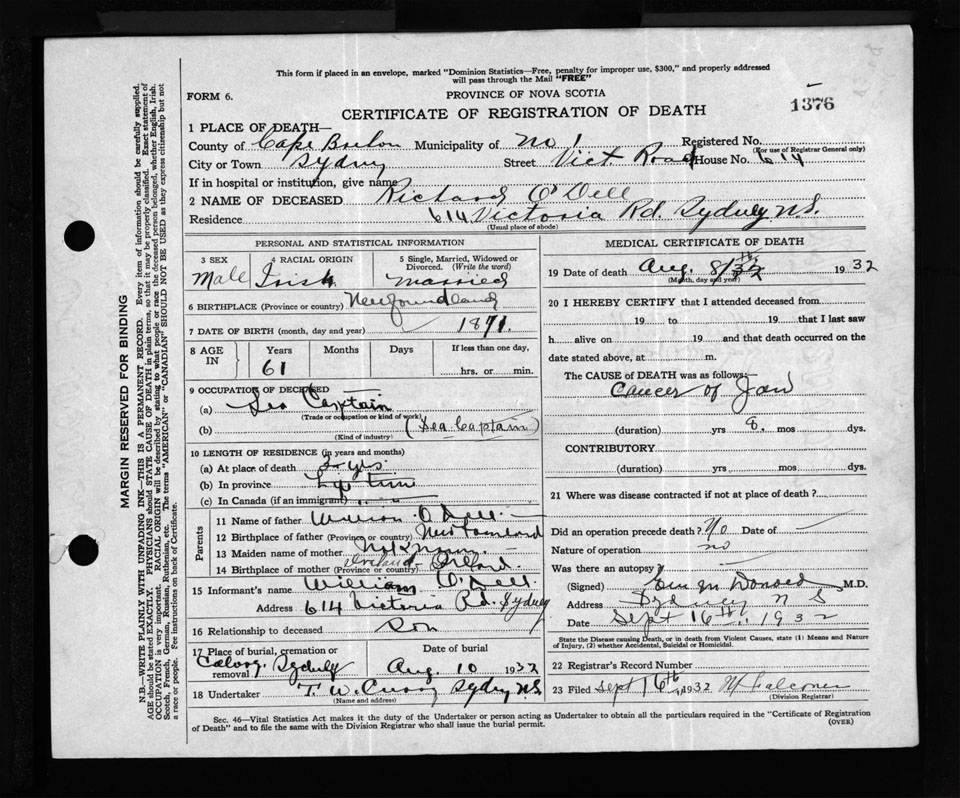 This form if placed in an envelope, marked "Dominion Statistics—Free, penalty for improper use, $300," and properly addressed
will pass through the Mail "FREE"
FORM 6.
PROVINCE OF NOVA SCOTIA
1376
CERTIFICATE OF REGISTRATION OF DEATH
1 PLACE OF DEATH—
County of Cape Breton Municipality of No 1 Registered No.
(For use of Registrar General only)
City or Town Sydney Street Vict Road House No. 614
If in hospital or institution, give name
2 NAME OF DECEASED Richard O'Dell
Residence 614 Victoria Rd. Sydney N.S.
(Usual place of abode)
PERSONAL AND STATISTICAL INFORMATION
3 SEX
Male
4 RACIAL ORIGIN
Irish
5 Single, Married, Widowed or
Divorced. (Write the word)
married
6 BIRTHPLACE (Province or country) Newfoundland
7 DATE OF BIRTH (month, day and year) 1871.
8 AGE
IN
Years
61
Months
Days
If less than one day,
hrs. or min.
9 OCCUPATION OF DECEASED
(a) Sea Captain
(Trade or occupation or kind of work)
(b) (Sea Captain)
(Kind of industry)
10 LENGTH OF RESIDENCE (in years and months)
(a) At place of death yrs
(b) In province
(c) In Canada (if an immigrant)
Parents
11 Name of father William O'Dell
12 Birthplace of father (Province or country) Newfoundland
13 Maiden name of mother Not Known
14 Birthplace of mother (Province or country) Ireland Ireland.
15 Informant's name William O'Dell
Address 614 Victoria Rd. Sydney
16 Relationship to deceased Son
17 Place of burial, cremation or
removal
Calvary Sydney
Date of burial
Aug. 10 1932
18 Undertaker T. W. Curry Sydney N.S.
(Name and address)
MEDICAL CERTIFICATE OF DEATH
19 Date of death Aug. 8/32 th 1932
(Month, day and year)
20 I HEREBY CERTIFY that I attended deceased from
19 to 19 that I last saw
h alive on 19 and that death occurred on the
date stated above, at m.
The CAUSE of DEATH was as follows:
Cancer of Jaw
(duration) yrs 8. mos dys.
CONTRIBUTORY
(duration) yrs mos dys.
21 Where was disease contracted if not at place of death?
Did an operation precede death? No Date of
Nature of operation no
Was there an autopsy
(Signed) M.D.
Address Sydney N S
Date Sept 16th, 1932
State the Disease causing Death, or in death from Violent Causes, state (1) Means and Nature
of Injury, (2) whether Accidental, Suicidal or Homicidal.
22 Registrar's Record Number
23 Filed Sept 16th 1932 Falconer
(Division Registrar)
Sec. 46—Vital Statistics Act makes it the duty of the Undertaker or person acting as Undertaker to obtain all the particulars required in the "Certificate of Registration
of Death" and to file the same with the Division Registrar who shall issue the burial permit.
(OVER)
MARGIN RESERVED FOR BINDING
N.B.—WRITE PLAINLY WITH UNFADING INK—THIS IS A PERMANENT RECORD. Every item of information should be carefully supplied.
AGE should be stated EXACTLY. PHYSICIANS should STATE CAUSE OF DEATH in plain terms, so that it may be properly classified. Exact statement of
OCCUPATION is very important. RACIAL ORIGIN will be described by stating to what people or race the deceased person belonged, whether English, Irish,
Scotch, French, German, Russian, Ruthenian, etc. The terms "AMERICAN" or "CANADIAN" SHOULD NOT BE USED as they express citizenship but not
a race or people. See instructions on back of Certificate.